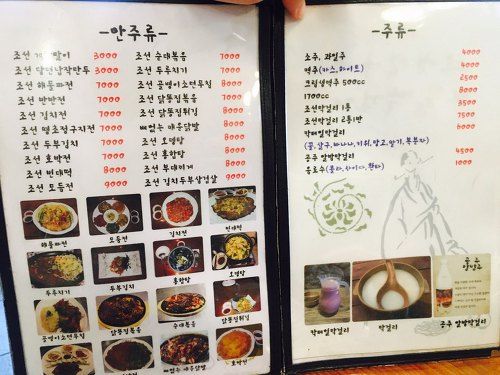 -안주류-
조선 계란말이 3000
조선 당면납작만두 3000
조선 해물파전 7000
조선 반반전 7000
조선 김치전 7000
조선 맹초정구지전 7000
조선 두부김치 7000
조선 호박전 7000
조선 빈대떡 8000
조선 모듬전 9000
조선 순대볶음 7000
조선 두루치기 7000
조선 골뱅이소면무침 8000
조선 닭똥집볶음 7000
조선 닭똥집튀김 8000
뼈없는 매운닭발 8000
조선 오뎅탕 8000
조선 홍합탕 8000
조선 부대찌개 8000
조선 김치두부삼겹살 9000
해물파전
모듬전
김치전
빈대떡
두루치기
두부김치
홍합탕
오뎅탕
골뱅이소면무침
닭똥집볶음
순대볶음
닭똥집튀김
뼈없는 매운닭발
호박전
-주류-
소주, 과일주 4000
맥주(카스,하이트) 4000
크림생맥주 500cc 2500
1700cc 8000
조선막걸리 1통 3500
조선막걸리 2통반 7500
칵테일막걸리 6000
(꿀,살구,바나나,키위,망고,딸기,복분자)
공주 알밤막걸리 4500
음료수(콜라,사이다,환타) 1000
칵테일막걸리
막걸리
공주 알밤막걸리